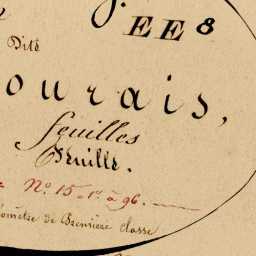 EE8
Dité
ourais,
feuilles
Feuille.
Nº. 15. 1º. à 96.
omètre de Première Classe